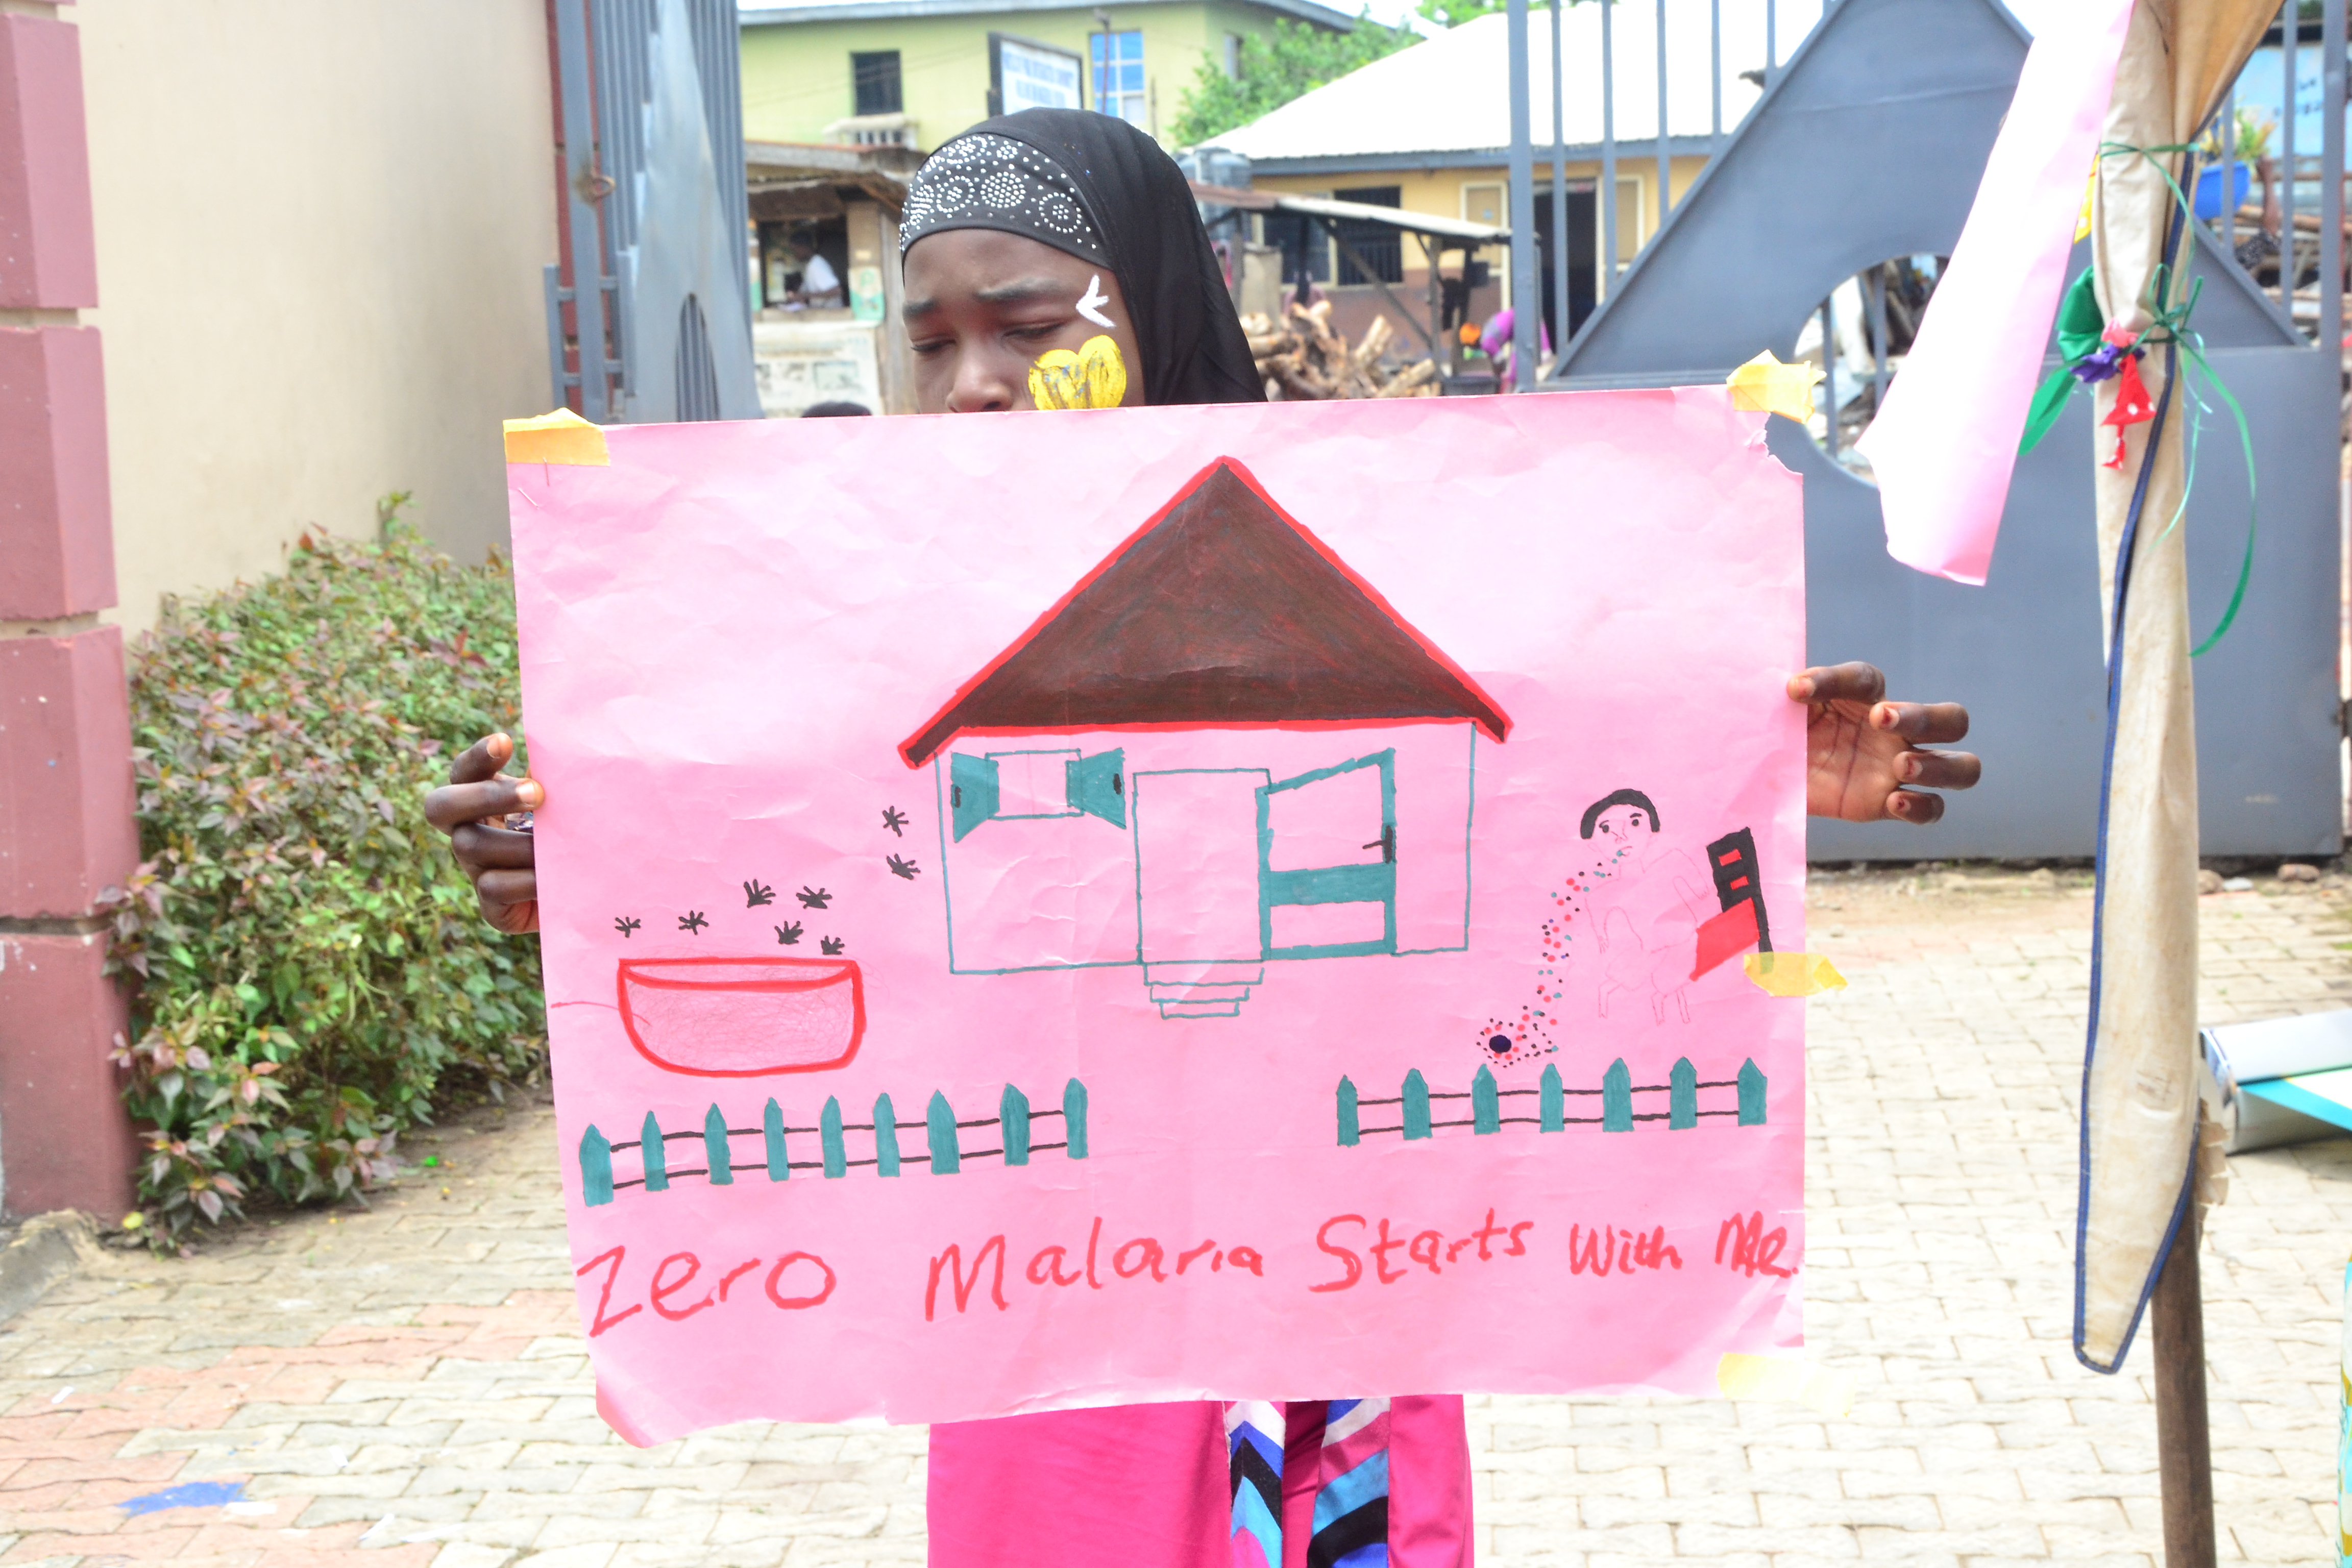 Zero Malaria Starts With Me.